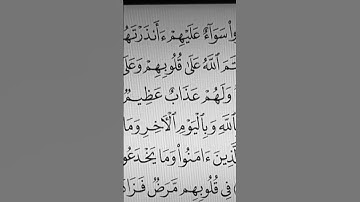 سَوَآءٌ عَلَيْهِمْ ءَأَنذَرْتَهُ
ٱللَّهُ عَلَىٰ قُلُوبِهِمْ وَعَلَىٰ
وَلَهُمْ عَذَابٌ عَظِيمٌ
وَبِٱلْيَوْمِ ٱلْءَاخِرِ وَمَا
ءَامَنُوا۟ وَمَا يَخْدَعُو
فِى قُلُوبِهِم مَّرَضٌ